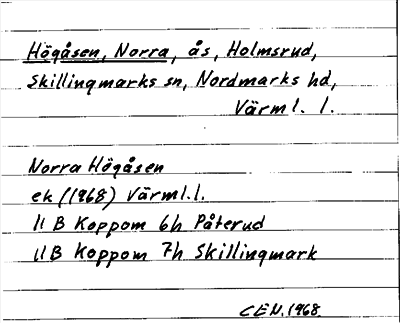 Högåsen, Norra, ås, Holmsrud,
Skillingmarks sn, Nordmarks hd,
Värml. l.
Norra Högåsen
ek (1968) Värml.l.
11 B Koppom 6h Påterud
11B Koppom 7h Skillingmark
CEN. 1968